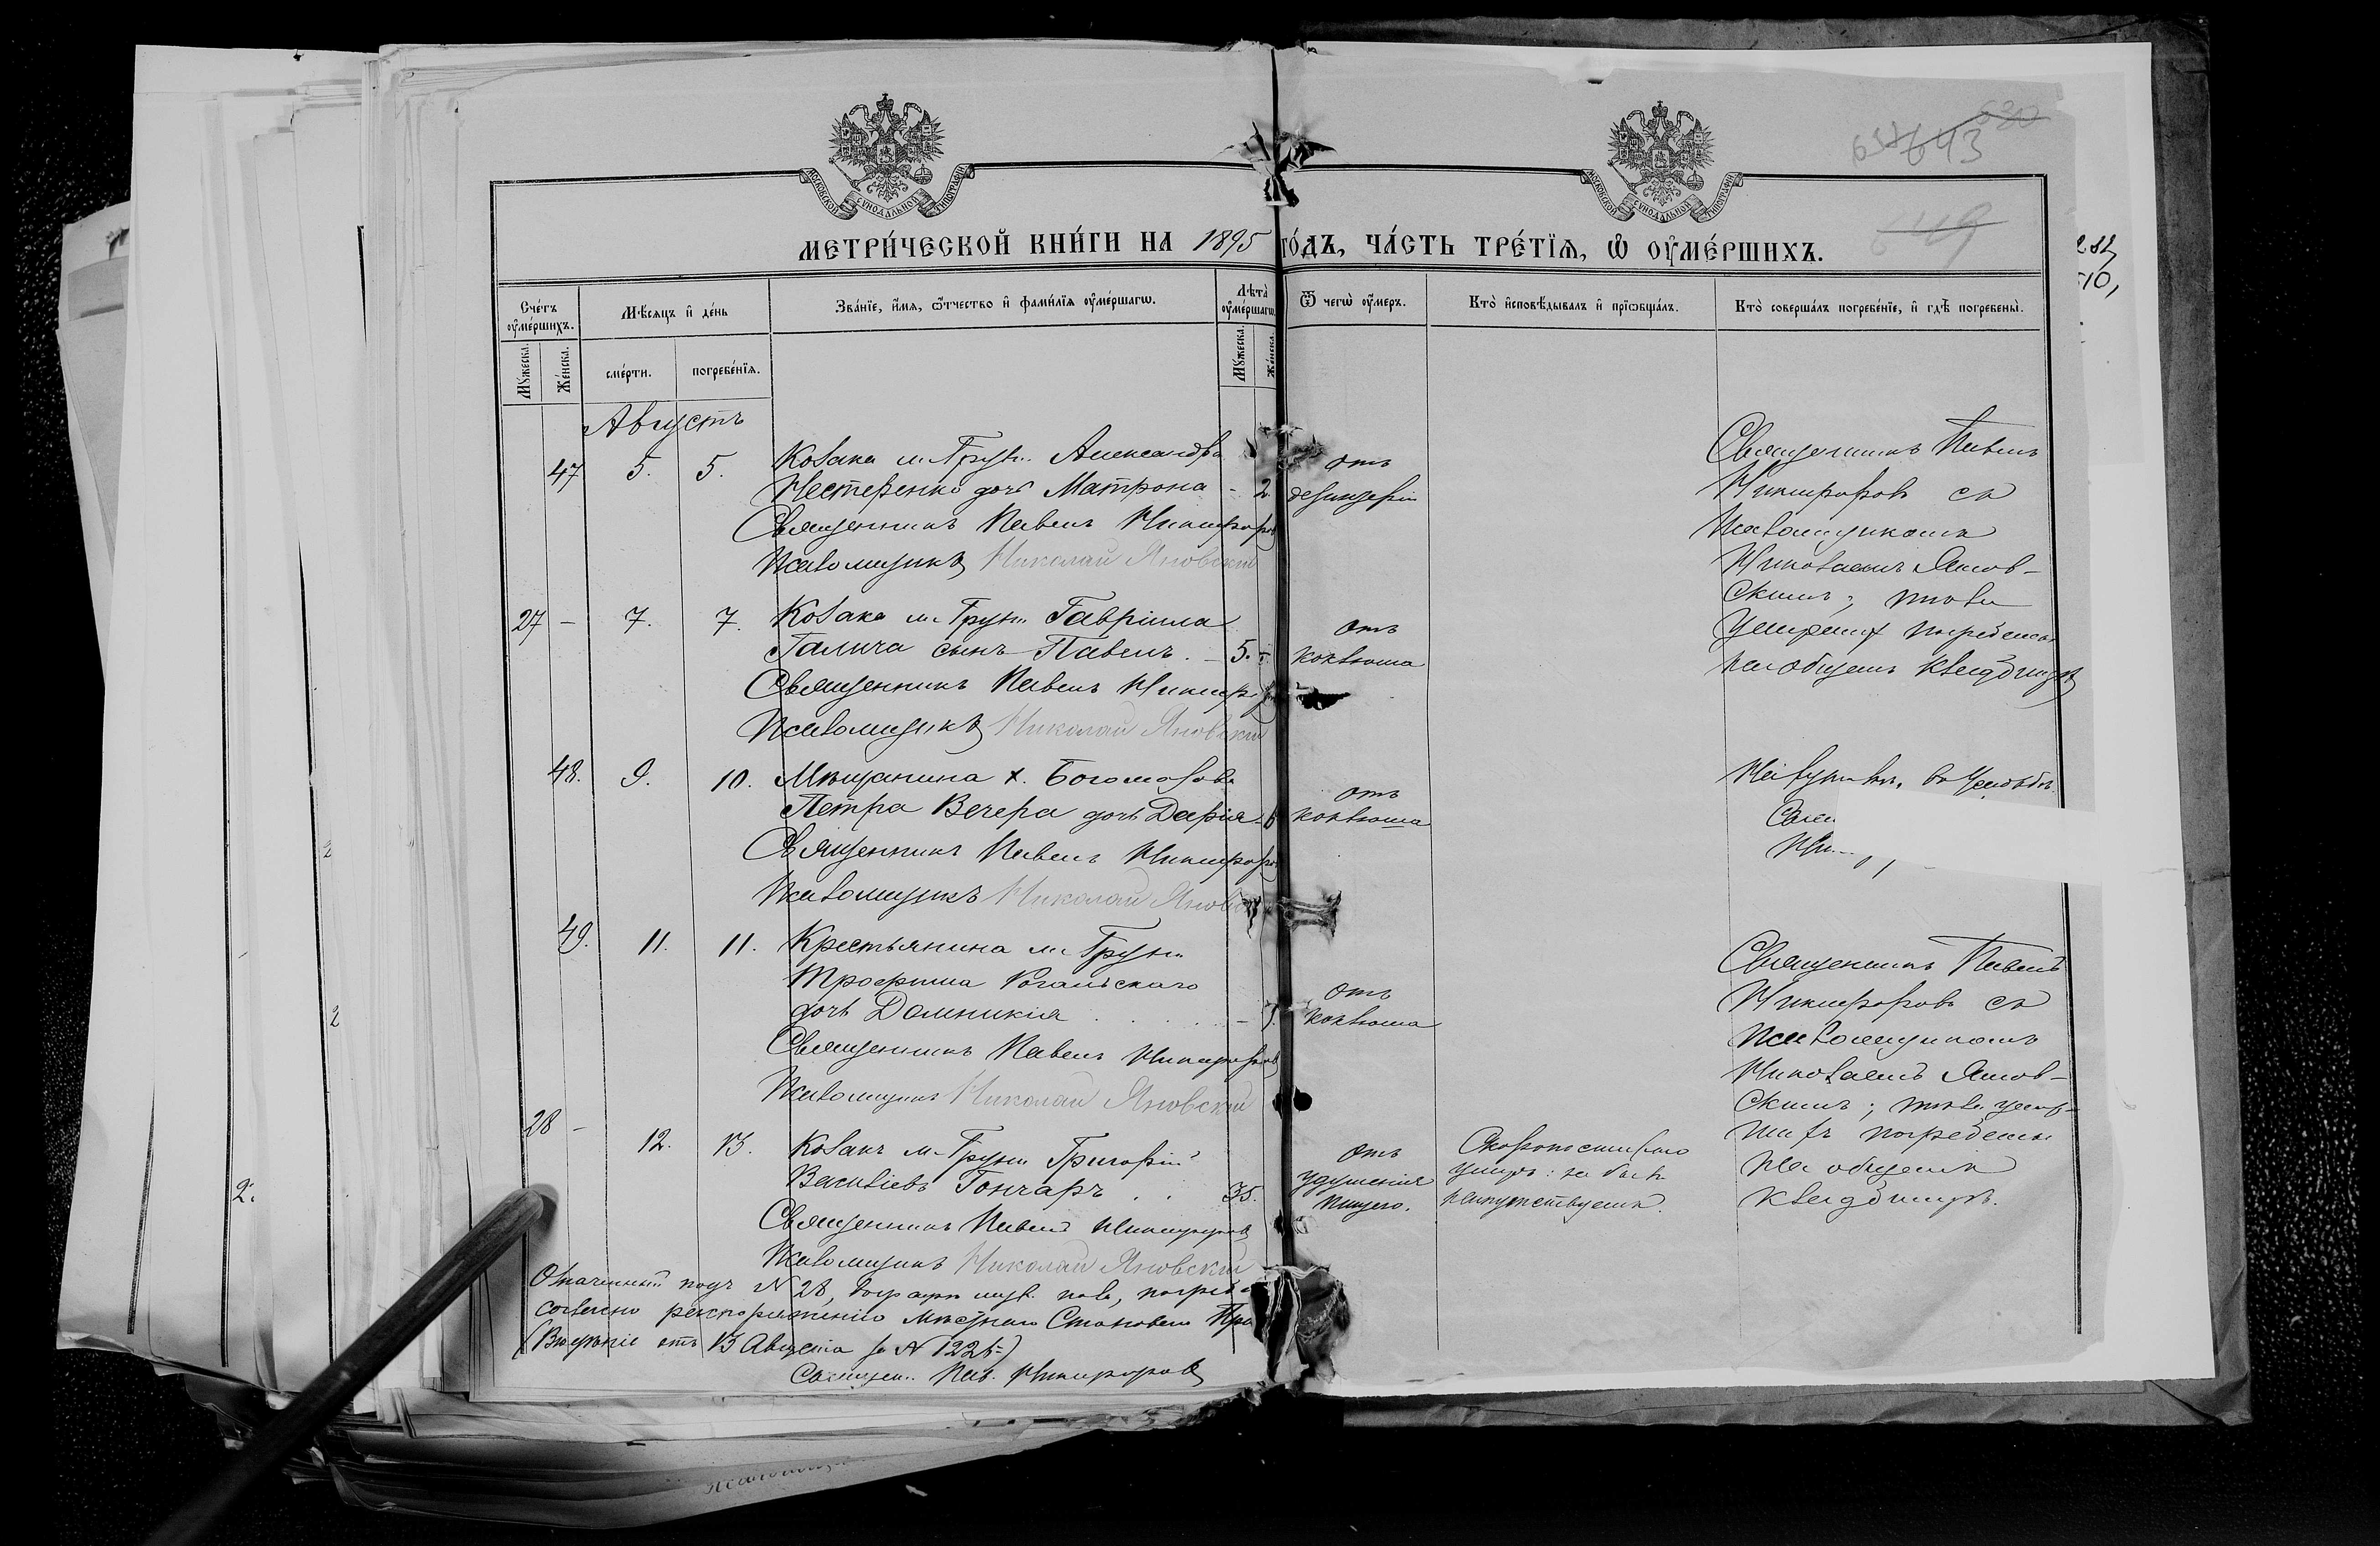 МОСКОВСКОЙ СѴНОДАЛЬНОЙ ТИПОГРАФІИ
МОСКОВСКОЙ СѴНОДАЛЬНОЙ ТИПОГРАФІИ
643
649
МЕТРИ́ЧЕСКОЙ КНИ́ГИ НА 1895 ГО́ДЪ, ЧА́СТЬ ТРЕ́ТІѦ, Ѽ ОУ҆МЕ́РШИХЪ.
Сче́тъ оу҆ме́ршихъ.
Мѣ́сѧцъ и҆ де́нь
Зва́нїе, и҆́мѧ, ѻ҆́тчество и҆ фами́лїѧ оу҆ме́ршагѡ.
Лѣта̀ оу҆ме́ршагѡ
Ѿ чегѡ̀ оу҆́меръ.
Кто̀ и҆сповѣ́дывалъ и҆ прїѡбща́лъ.
Кто̀ соверша́лъ погребе́нїе, и҆ гдѣ̀ погребены̀.
Мꙋ́жеска.
Же́нска.
сме́рти.
погребе́нїѧ.
Мꙋ́жеска.
Же́нска.
Августъ
47 5. 5. Козака м. Груни Александра
Нестеренко дочь Матрона - 2
Священникъ Павелъ Никифоровъ
Псаломщикъ Николай Яновскій
отъ
дезинтеріи
Священникъ Павелъ
Никифоровъ съ
псаломщикомъ
Николаемъ Янов-
скимъ;
погребены
на общемъ кладбищѣ
27 - 7. 7. Козака м. Груни Гавріила
Галича сынъ Павелъ. - 5.
Священникъ Павелъ
Псаломщикъ Николай Яновскій
отъ
коклюша
48. 9. 10. Мѣщанина х. Богомазова
Петра Вечера дочь Дарія
Священникъ Павелъ Никифоровъ
Псаломщикъ Николай
отъ
коклюша
49. 11. 11. Крестьянина м. Груни
Трофима Рогальскаго
дочь Домникія
Священникъ Павелъ Никифоровъ
Псаломщикъ Николай Яновскій
отъ
коклюша
Священникъ Павелъ
Никифоровъ съ
псаломщикомъ
Николаемъ Янов-
скимъ;
погребены
на общемъ
кладбищѣ.
28 - 12. 13. Козакъ м. Груни Григорій
Васильевъ Гончаръ . . 35.
Священникъ Павелъ Никифоровъ
Псаломщикъ Николай Яновскій
отъ
удушенія
пищею.
Скоропостижно
умеръ: не былъ
напутствуемъ.
Означенный подъ № 28,
согласно распоряженію мѣстнаго Становаго
отъ 13 Августа за №
Священ. Пав. Никифоровъ
2
2
2.